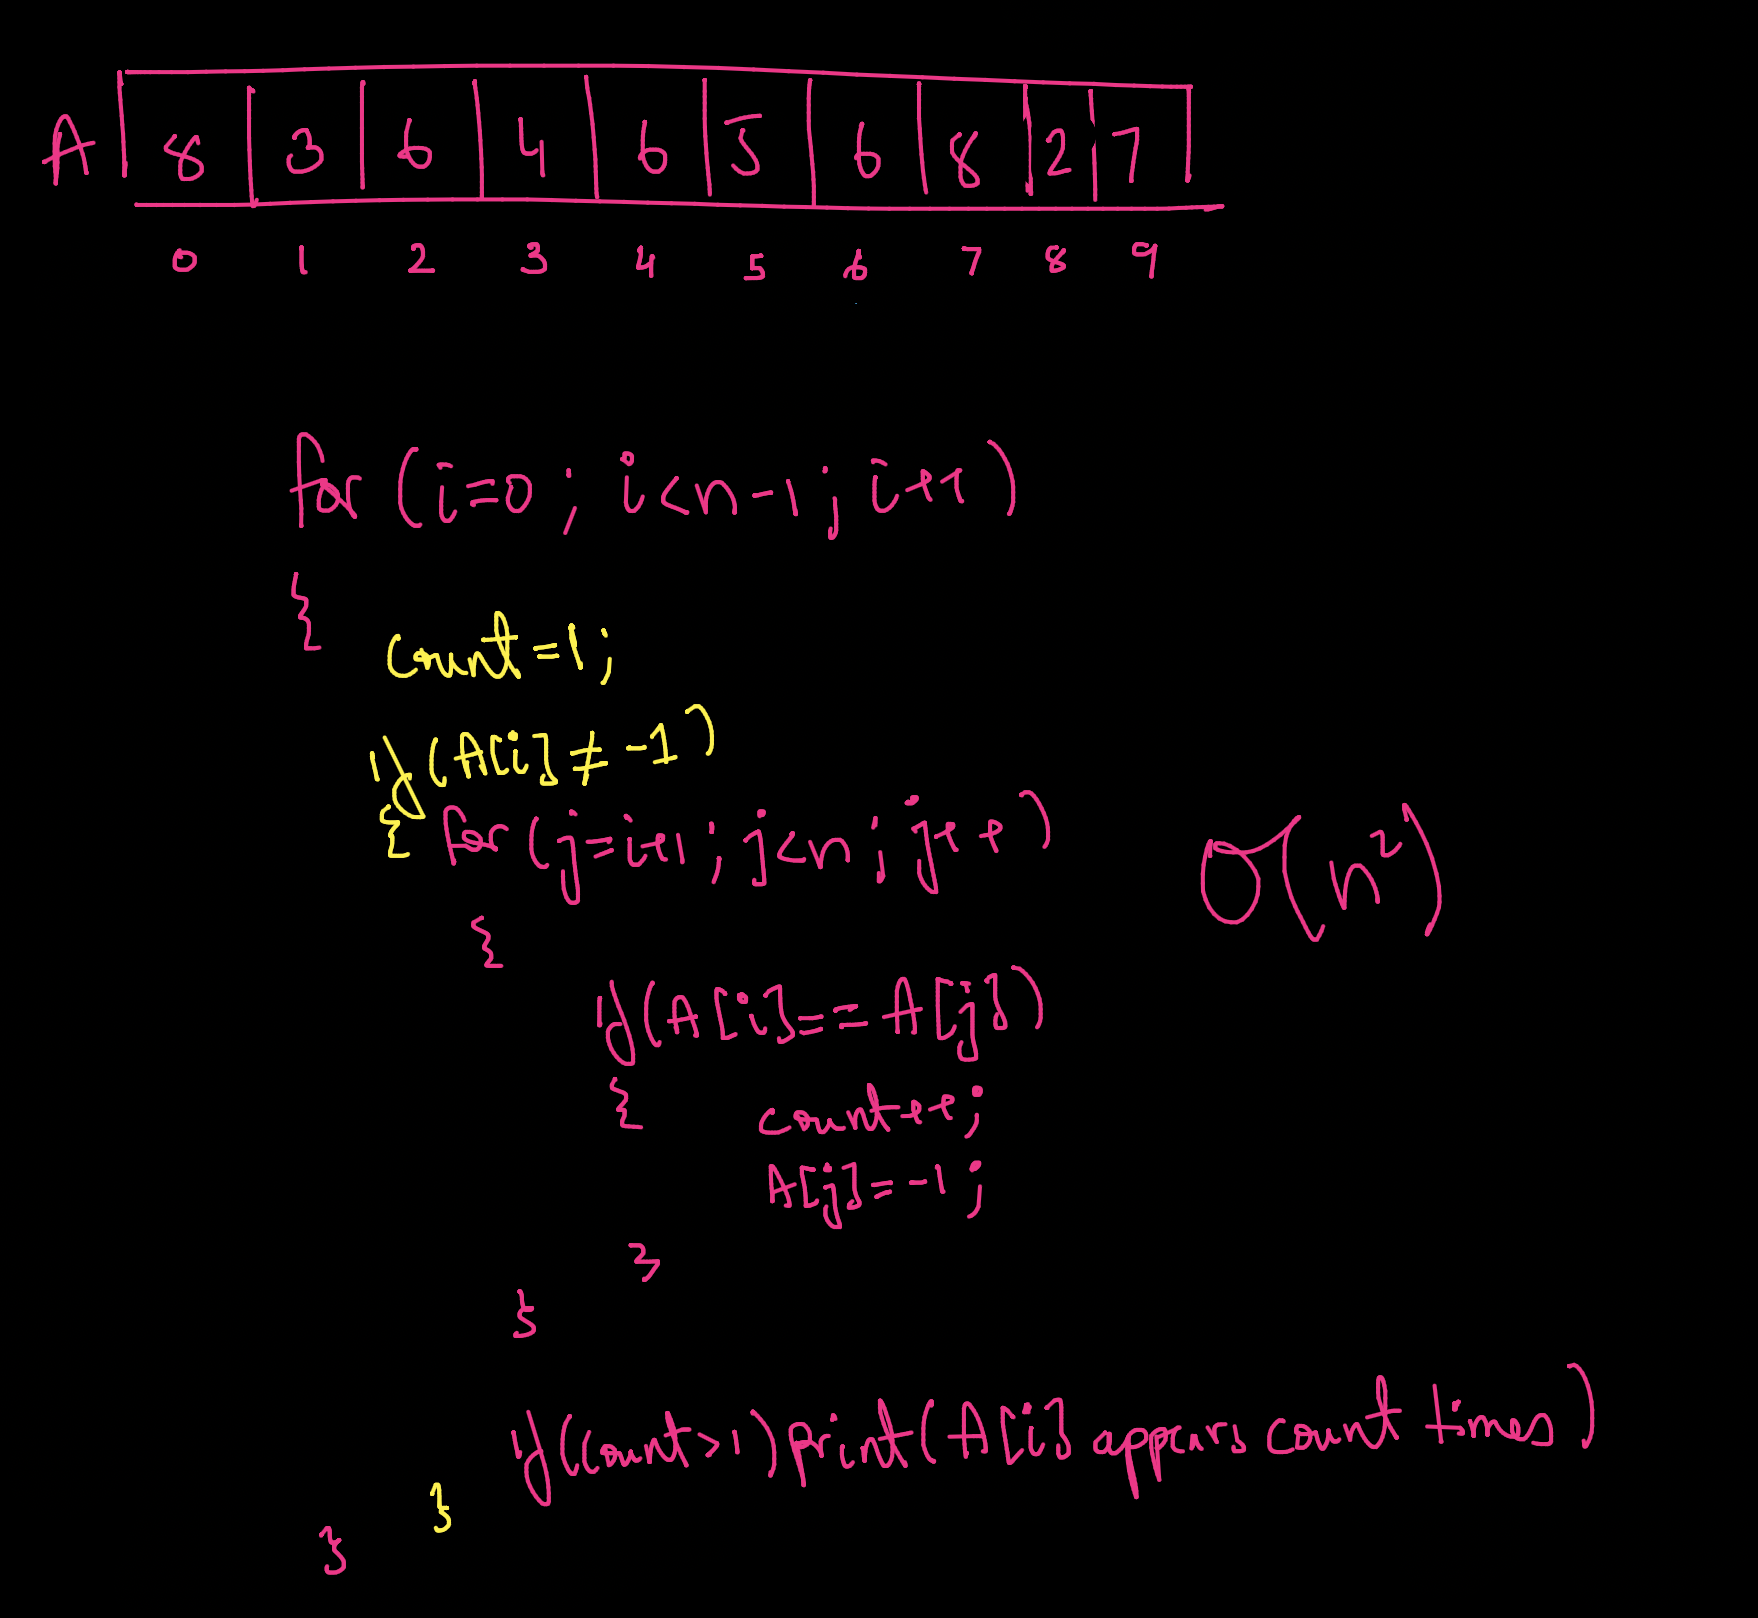 A 8 3 6 4 6 5 6 8 2 7
0 1 2 3 4 5 6 7 8 9
for (i=0; i<n-1; i++)
{
count=1;
if(A[i]≠-1)
{ for(j=i+1; j<n; j++)
O(n²)
{
if(A[i]==A[j])
{ count++;
A[j]=-1;
}
}
if(count>1)print(A[i] appears count times)
}
}